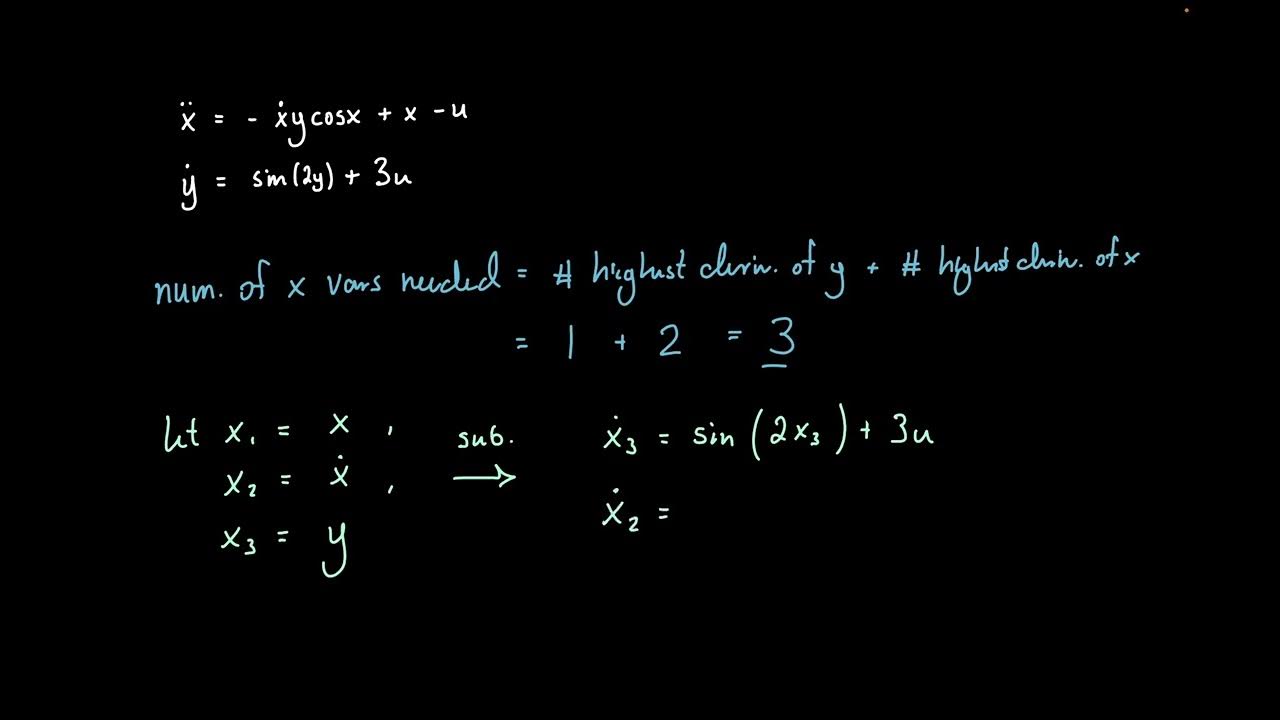 ẍ = - ẋy cosx + x - u
ẏ = sin(2y) + 3u
num. of x vars needed = # highest deriv. of y + # highest deriv. of x
= 1 + 2 = 3
let x₁ = x , sub. ẋ₃ = sin(2x₃) + 3u
x₂ = ẋ , → ẋ₂ =
x₃ = y